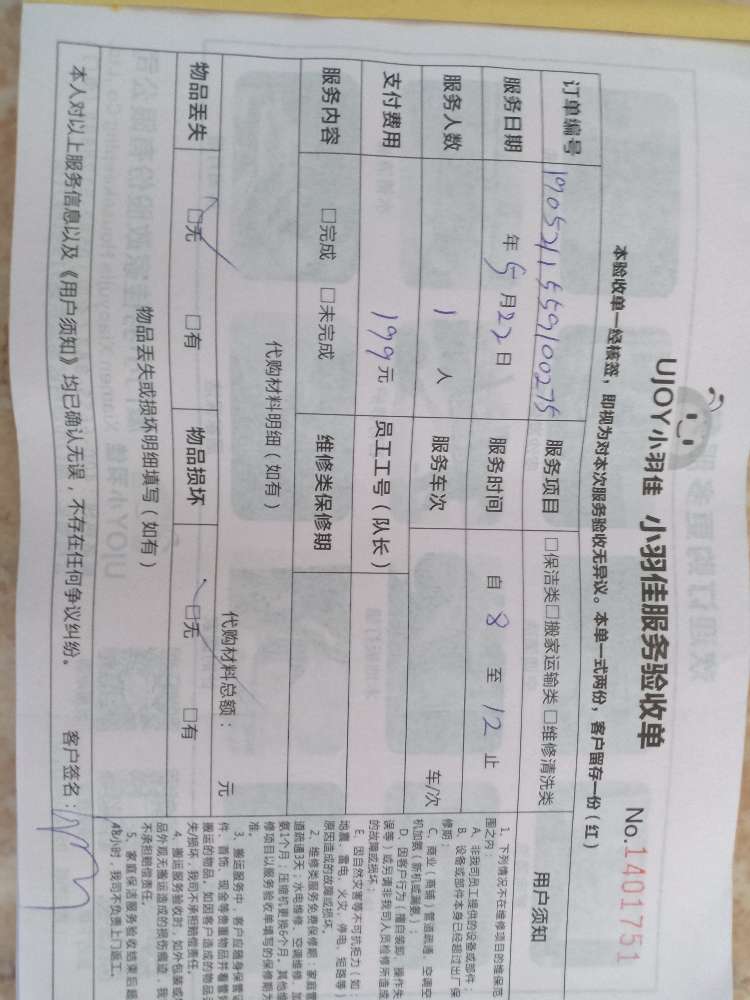 UJOY小羽佳 小羽佳服务验收单
No.1401751
本验收单一经核签，即视为对本次服务验收无异议。本单一式两份，客户留存一份（红）
订单编号 1905211559100275 服务项目 □保洁类□搬家运输类□维修清洗类 用户须知
服务日期 年5月22日 服务时间 自 8 至 12 止
服务人数 1 人 服务车次 车/次
支付费用 199元 员工工号（队长）
服务内容 □完成 □未完成 维修类保修期
代购材料明细（如有）
代购材料总额： 元
物品丢失 □无 □有 物品损坏 □无 □有
物品丢失或损坏明细填写（如有）
本人对以上服务信息以及《用户须知》均已确认无误，不存在任何争议纠纷。 客户签名：
1、下列情况不在维修项目的维保范
围之内：
A、非我司员工提供的设备或部件；
B、设备或部件本身已经超过出厂保
修期；
C、商业（商铺）管道疏通、空调空
机加氨（新机或漏氨）；
D、因客户行为（擅自装卸、操作失
误等）或另请非我司人员检修所造成
的故障或损坏；
E、因自然灾害等不可抗拒力（如：
地震、雷电、火灾、停电、短路等）
原因造成的故障或损坏。
2、维修类服务免费保修期：家庭管
道疏通3天；水电维修、空调维修、加
氨1个月；压缩机更换6个月，其他维
修项目以服务验收单填写的保修期为
准。
3、搬运服务中，客户应随身保管证
件、首饰、现金等贵重物品并看管
搬运的物品，如因客户造成的物品丢
失/损坏，我司不承担赔偿责任。
4、搬运服务验收时，如外包装或
品外观无搬运造成的损伤痕迹，我
不承担赔偿责任。
5、家庭保洁服务验收结束后超
48小时，我司不负责上门返工。